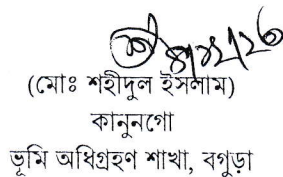 (মোঃ শহীদুল ইসলাম)
কানুনগো
ভূমি অধিগ্রহণ শাখা, বগুড়া